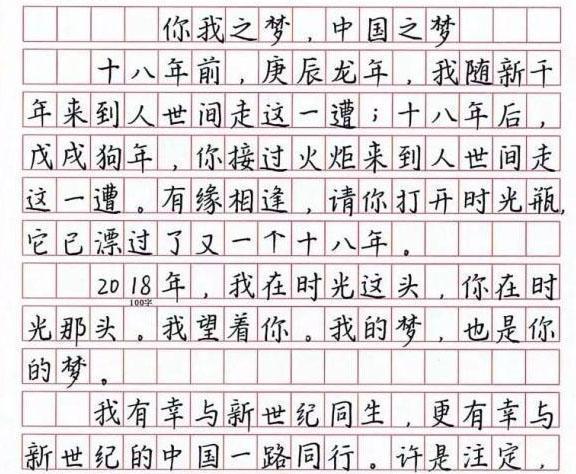 你我之梦，中国之梦
十八年前，庚辰龙年，我随新千
年来到人世间走这一遭；十八年后，
戊戌狗年，你接过火炬来到人世间走
这一遭。有缘相逢，请你打开时光瓶，
它已漂过了又一个十八年。
2018年，我在时光这头，你在时
100字
光那头。我望着你。我的梦，也是你
的梦。
我有幸与新世纪同生，更有幸与
新世纪的中国一路同行。许是注定，